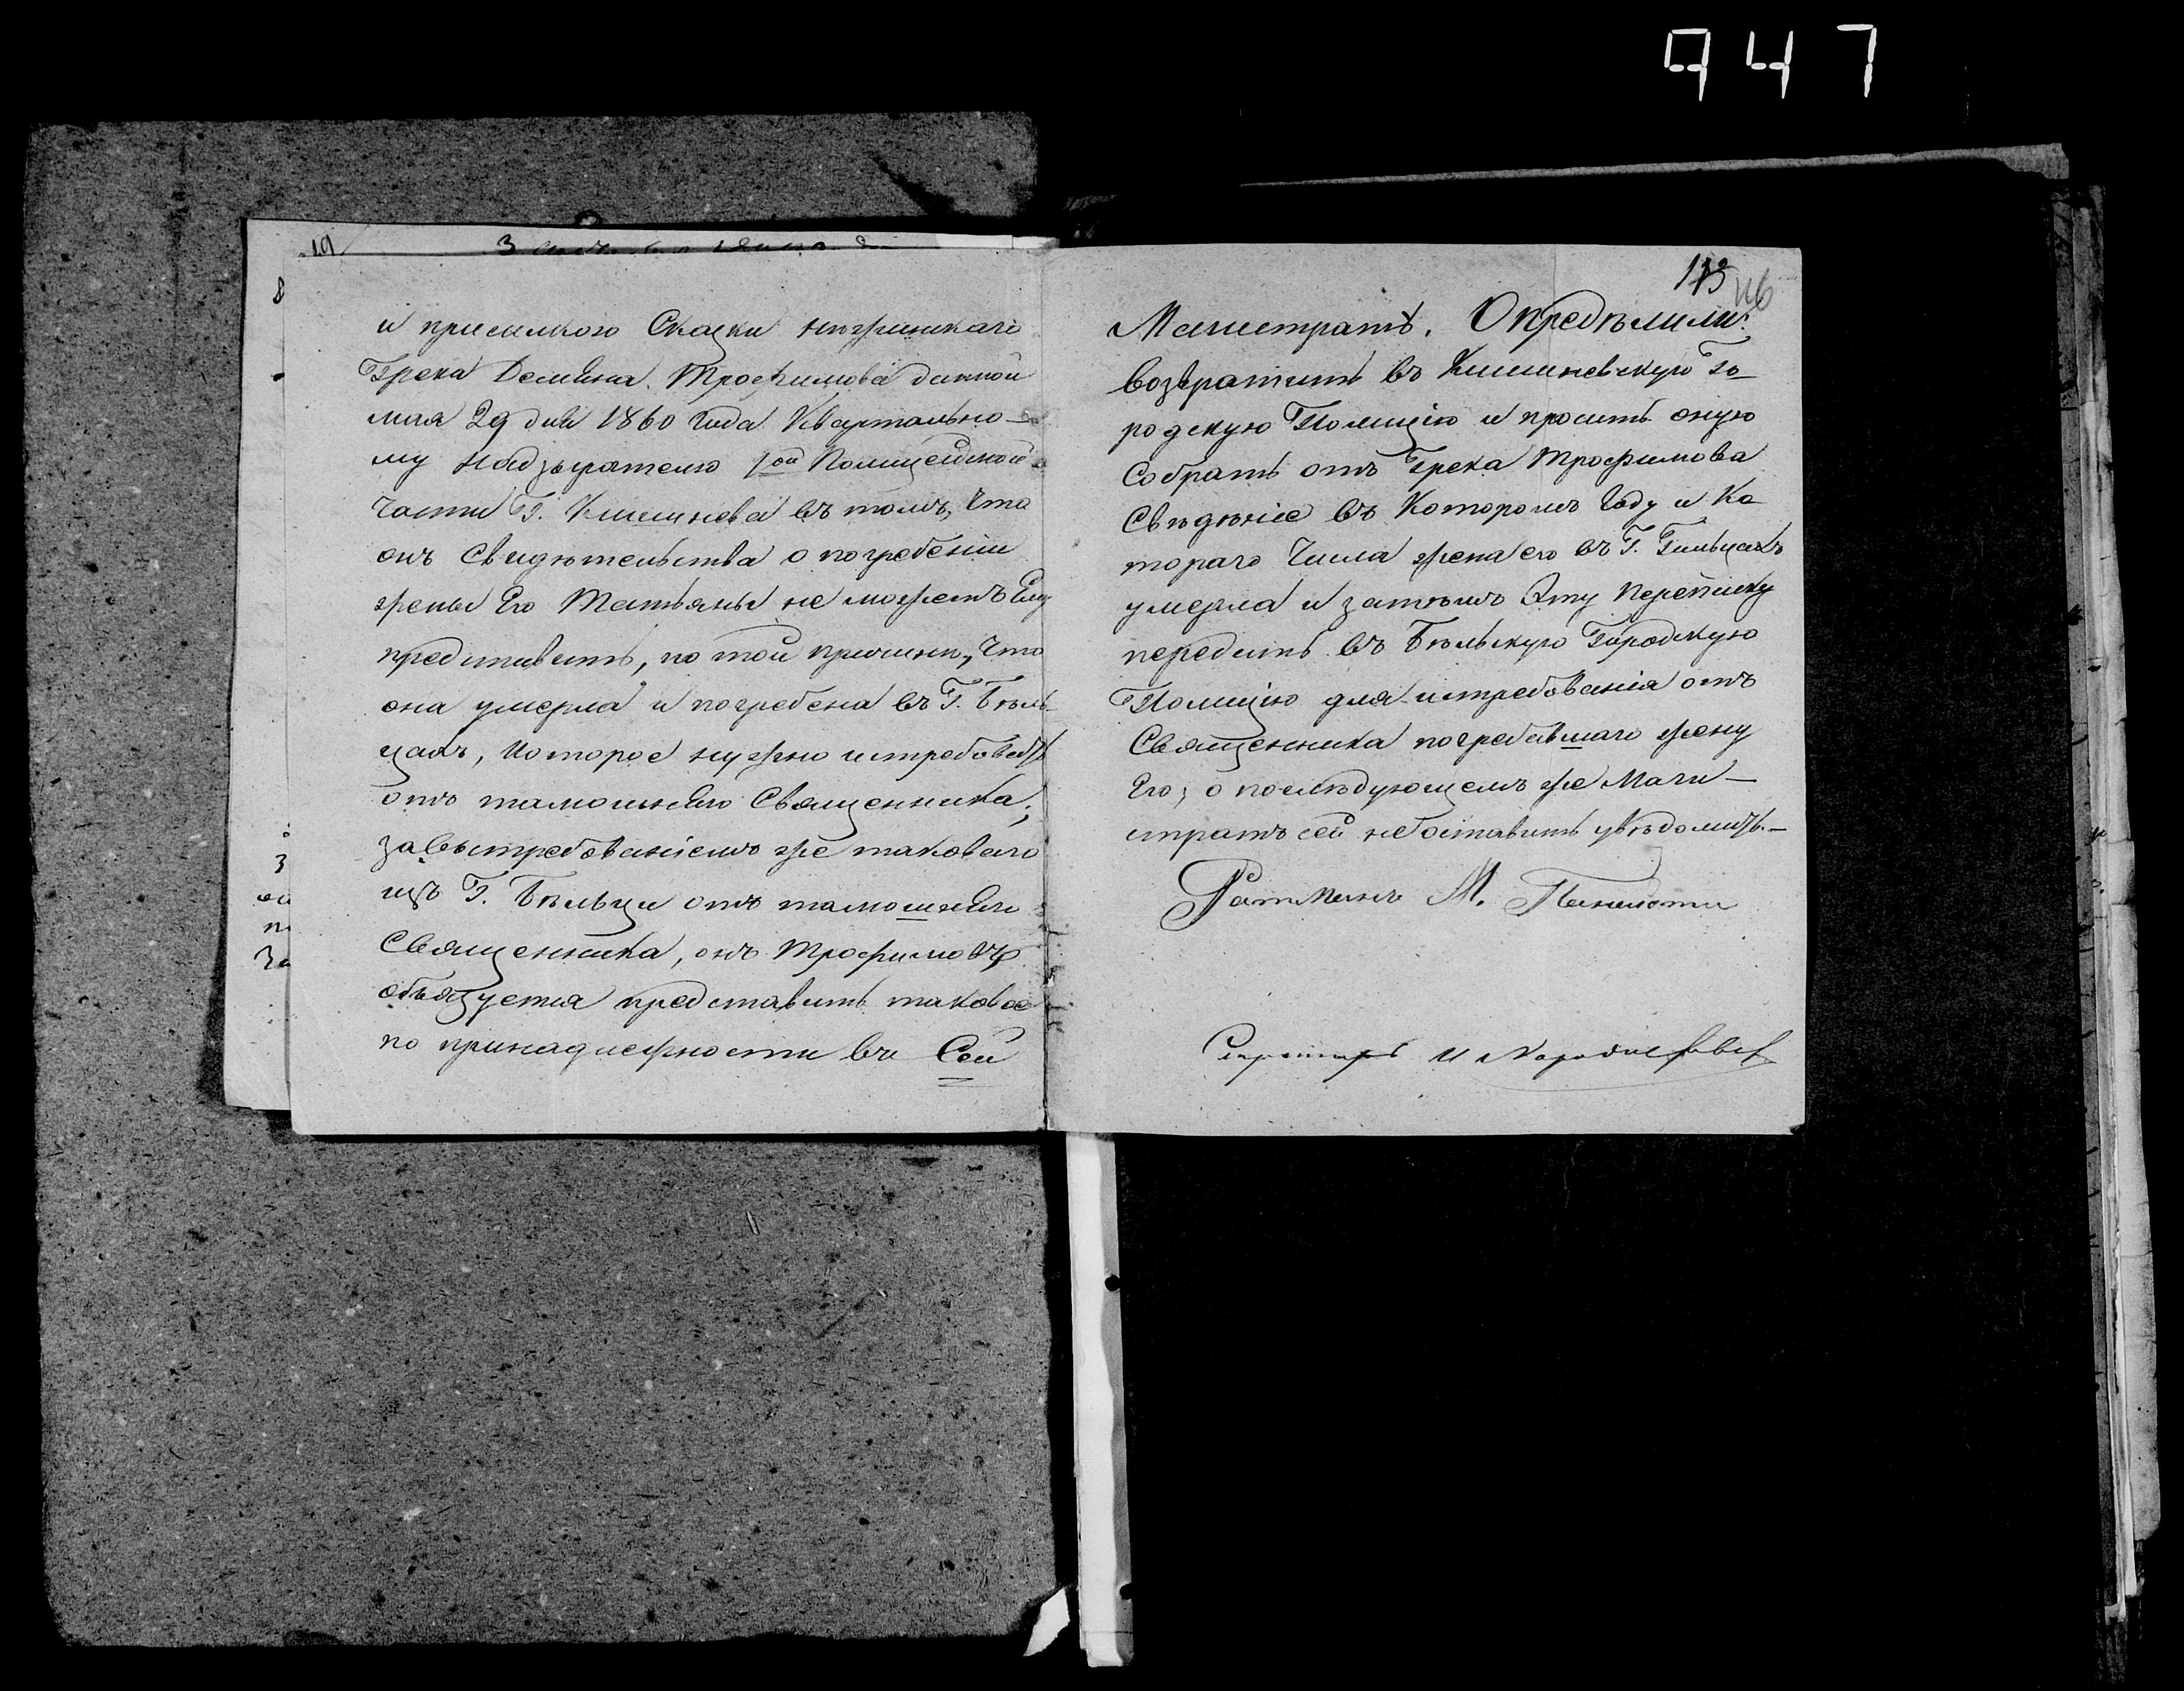 947
19
113
116
и присылкою Сказки нѣжинскаго
Грека Демьяна Трофимова данной
мая 29 дня 1860 года Квартально-
му надзырателю 1ой Полицейской
Части Г. Кишинева въ томъ, Что
онъ Свидѣтельства о погребеніи
жены Его Татьяны не можетъ Ему
представить, по той причинѣ, Что
она умерла и погребена въ Г. Бѣль-
цахъ, Которое нужно истребовать
отъ тамошняго Священника;
за вытребованіемъ же таковаго
изъ Г. Бѣльцы отъ тамошняго
Священника, онъ Трофимовъ
обязуется представить таковое
по принадлежности въ Сей
Магистратъ. Опредѣлили:
возвратить въ Кишиневскую Го-
родскую Полицію и просить оную
Собрать отъ Грека Трофимова
Свѣдѣніе въ Которомъ Году и Ко
тораго Числа жена его въ Г. Бельцахъ
умерла и затѣмъ Эту Переписку
передать въ Бѣльскую Городскую
Полицію для истребованія отъ
Священника погребавшаго жену
Его; о послѣдующемъ же Маги-
стратъ сей не оставить увѣдомить.-
Ратманъ М.
Секретарь И